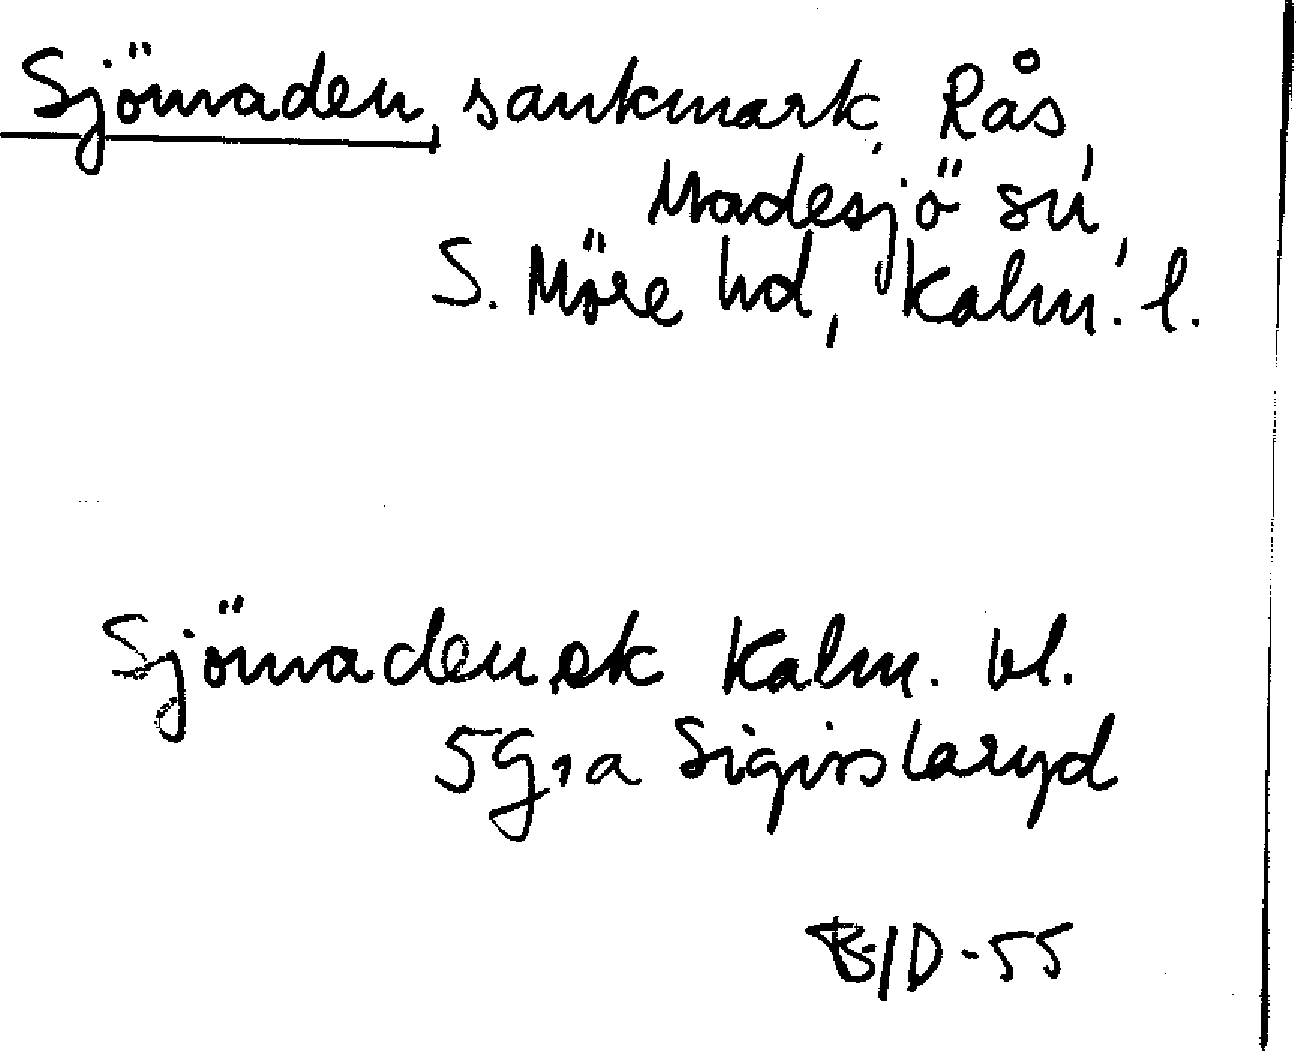 Sjömaden, sankmark, Rås,
Madesjö sn,
S. Möre hd, Kalm. l.
Sjömaden ek Kalm. bl.
5G,a Sigirslaryd
B/D-55